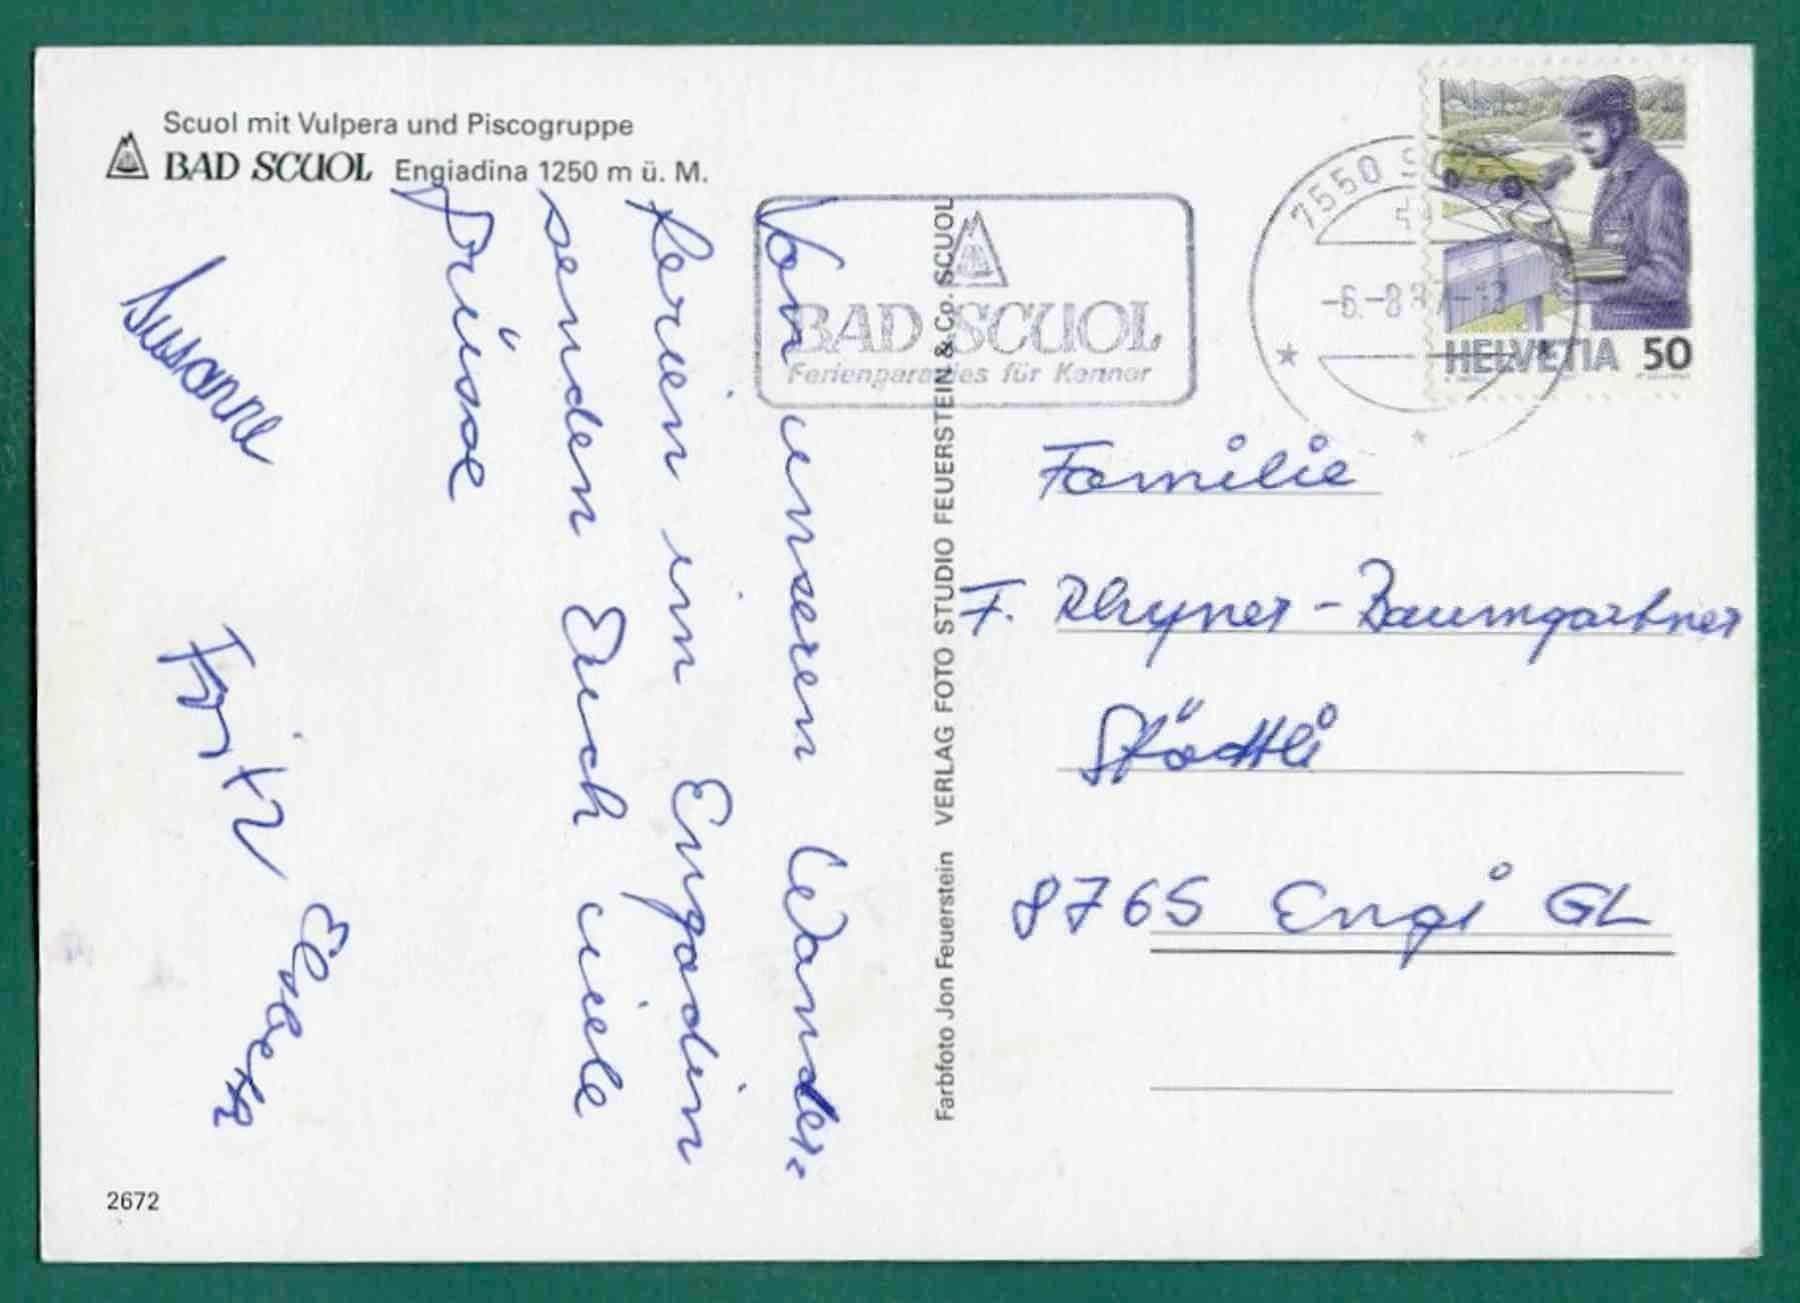 Scuol mit Vulpera und Piscogruppe
BAD SCUOL Engiadina 1250 m ü. M.
Von unseren Wander=
ferien im Engadin
senden Euch viele
Grüsse
Susanne
Fritz
Elsbeth
2672
Farbfoto Jon Feuerstein VERLAG FOTO STUDIO FEUERSTEIN & Co. SCUOL
BAD SCUOL
Ferienparadies für Kenner
7550
-6.-8
HELVETIA 50
Familie
F. Rhyner-Baumgartner
Städtli
8765 Engi GL